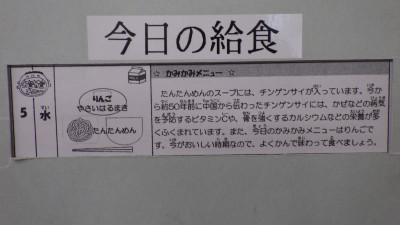 今日の給食
☆ かみかみメニュー ☆
5
水
りんご
やさいはるまき
たんたんめん
たんたんめんのスープには、チンゲンサイが入っています。今か
ら約50年前に中国から伝わったチンゲンサイには、かぜなどの病気
を予防するビタミンCや、骨を強くするカルシウムなどの栄養が多
くふくまれています。また、今日のかみかみメニューはりんごで
す。今がおいしい時期なので、よくかんで味わって食べましょう。